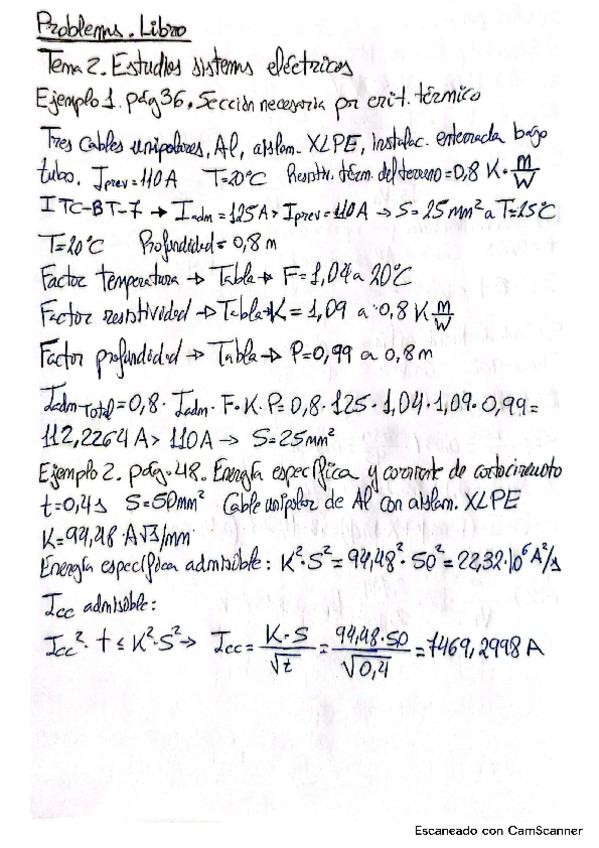 Problemas. Libro
Tema 2. Estudios sistemas eléctricos
Ejemplo 1. pág 36. Sección necesaria por crit. térmico
Tres Cables unipolares, Al, aislam. XLPE, instalac. enterrada bajo
tubo. Iprev = 110 A T=20°C Resistiv. térm. del terreno = 0,8 K·m/W
ITC-BT-7 → Iadm = 125 A > Iprev = 110 A → S = 25 mm² a T=25°C
T=20°C Profundidad = 0,8 m
Factor temperatura → Tabla → F = 1,04 a 20°C
Factor resistividad → Tabla → K = 1,09 a 0,8 K m/W
Factor profundidad → Tabla → P = 0,99 a 0,8 m
IadmTotal = 0,8 · Iadm · F · K · P = 0,8 · 125 · 1,04 · 1,09 · 0,99 =
112,2264 A > 110 A → S = 25 mm²
Ejemplo 2. pág. 48. Energía específica y corriente de cortocircuito
t = 0,4 s S = 50 mm² Cable unipolar de Al con aislam. XLPE
K = 94,48 · A√s/mm²
Energía específica admisible: K²·S² = 94,48² · 50² = 22,32·10⁶ A²/s
Icc admisible:
Icc² · t ≤ K²·S² → Icc = K·S/√t = 94,48·50/√0,4 = 7469,2998 A
Escaneado con CamScanner